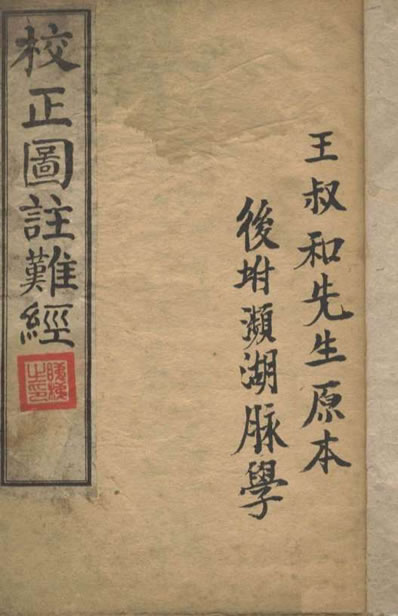 校正圖註難經
王叔和先生原本
後坿瀕湖脉學